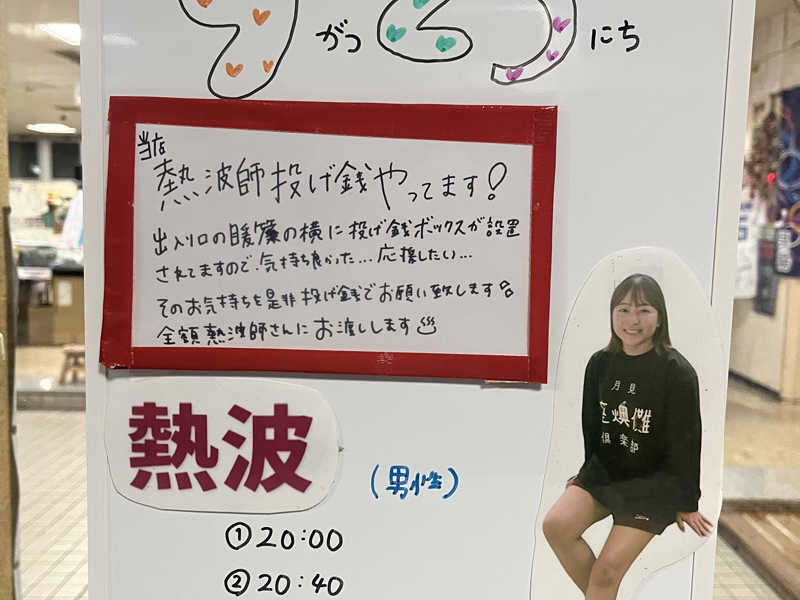 がつ
にち
当店
熱波師投げ銭やってます!
出入り口の暖簾の横に投げ銭ボックスが設置
されてますので、気持ち良かった...応援したい...
そのお気持ちを是非投げ銭でお願い致します
全額熱波師さんにお渡しします♨
熱波
(男性)
①20:00
②20:40
月見
倶楽部